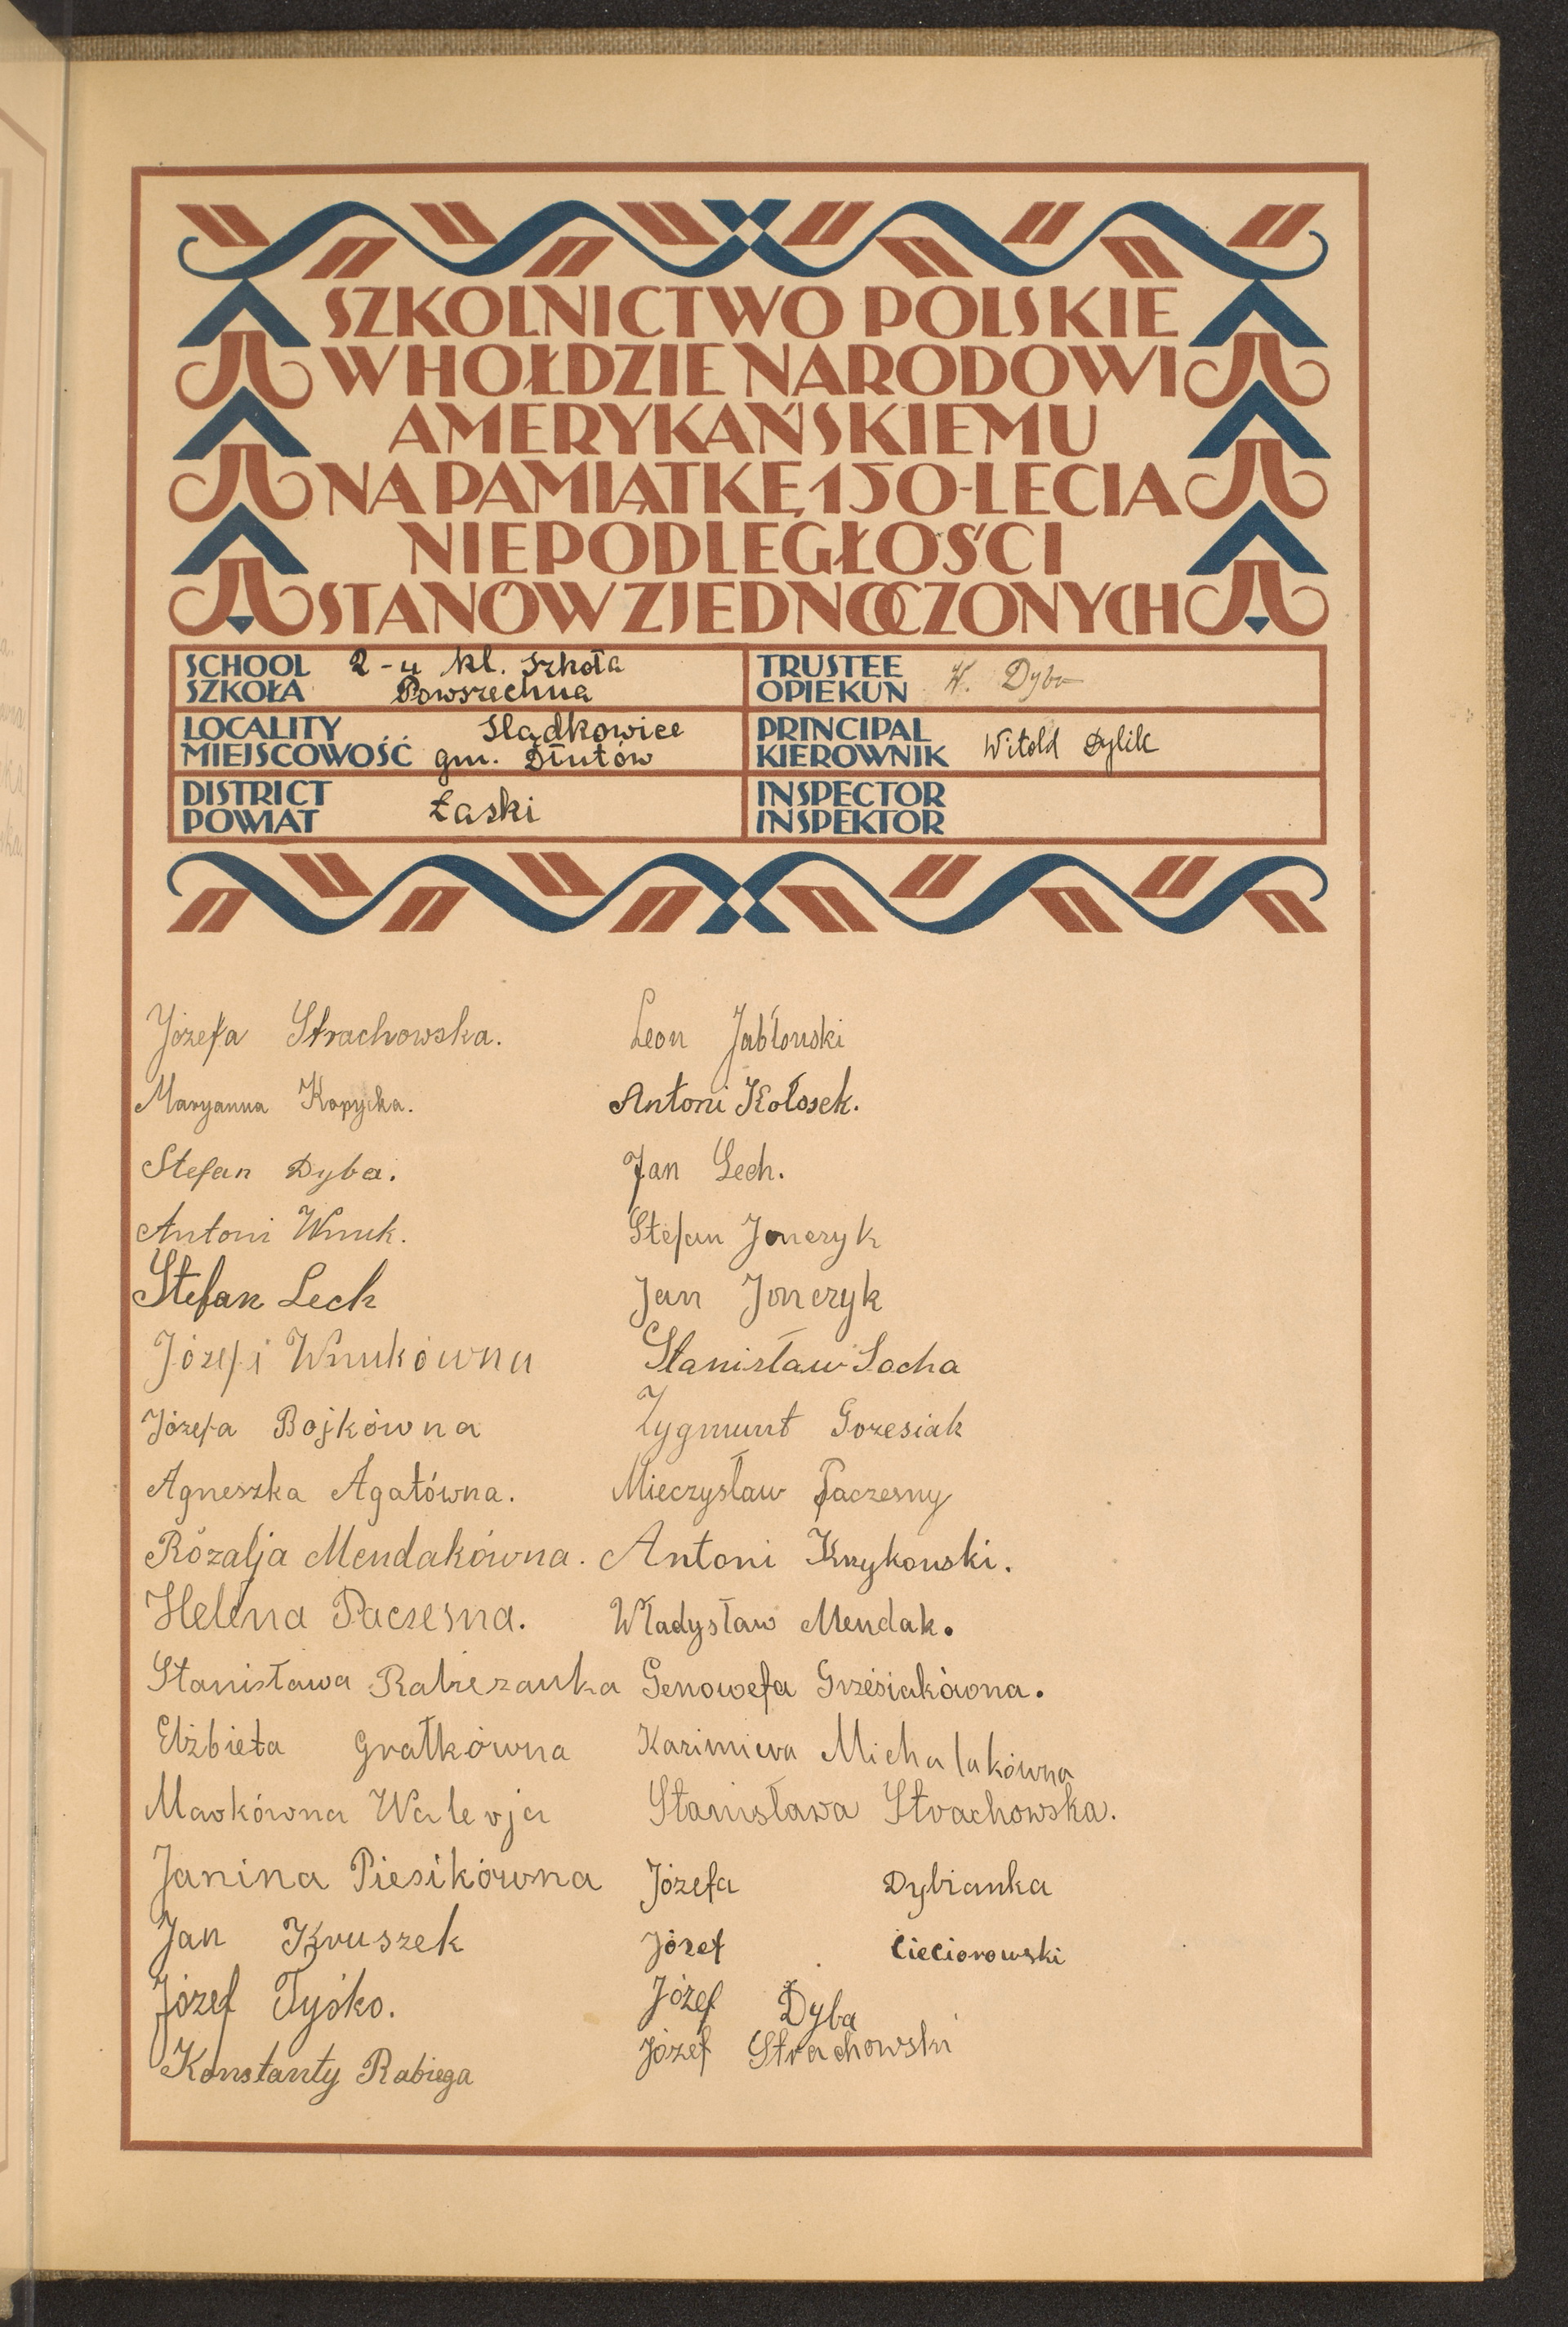 SZKOLNICTWO POLSKIE
W HOŁDZIE NARODOWI
AMERYKAŃSKIEMU
NA PAMIĄTKĘ 150-LECIA
NIEPODLEGŁOŚCI
STANÓW ZJEDNOCZONYCH
SCHOOL
SZKOŁA
2-u kl. Szkoła
Powszechna
TRUSTEE
OPIEKUN
W. Dyba
LOCALITY
MIEJSCOWOŚĆ
Slądkowice
gm. Dłutów
PRINCIPAL
KIEROWNIK
Witold Dylik
DISTRICT
POWIAT
Łaski
INSPECTOR
INSPEKTOR
Józefa Strachowska.
Maryanna Kopycka.
Stefan Dyba.
Antoni Wnuk.
Stefan Lech
Józefi Wnukówna
Józefa Bojkówna
Agneszka Agatówna.
Rózalja Mendakówna.
Helena Paczesna.
Stanisława
Elżbieta Gratkówna
Markówna Walerja
Janina Piesikówna
Jan Kruszek
Józef Tyśko.
Konstanty Rabiega
Leon Jabłonski
Antoni Kołosek.
Jan Lech.
Stefan Jonczyk
Jan Jonczyk
Stanisław Socha
Zygmunt Gozesiak
Mieczysław Paczesny
Antoni Krzykowski.
Władysław Mendak.
Genowefa Grzesiakówna.
Kazimiera Michalakówna
Stanisława Strachowska.
Józefa Dybianka
Józef Cieciorowski
Józef Dyba
Józef Strachowski